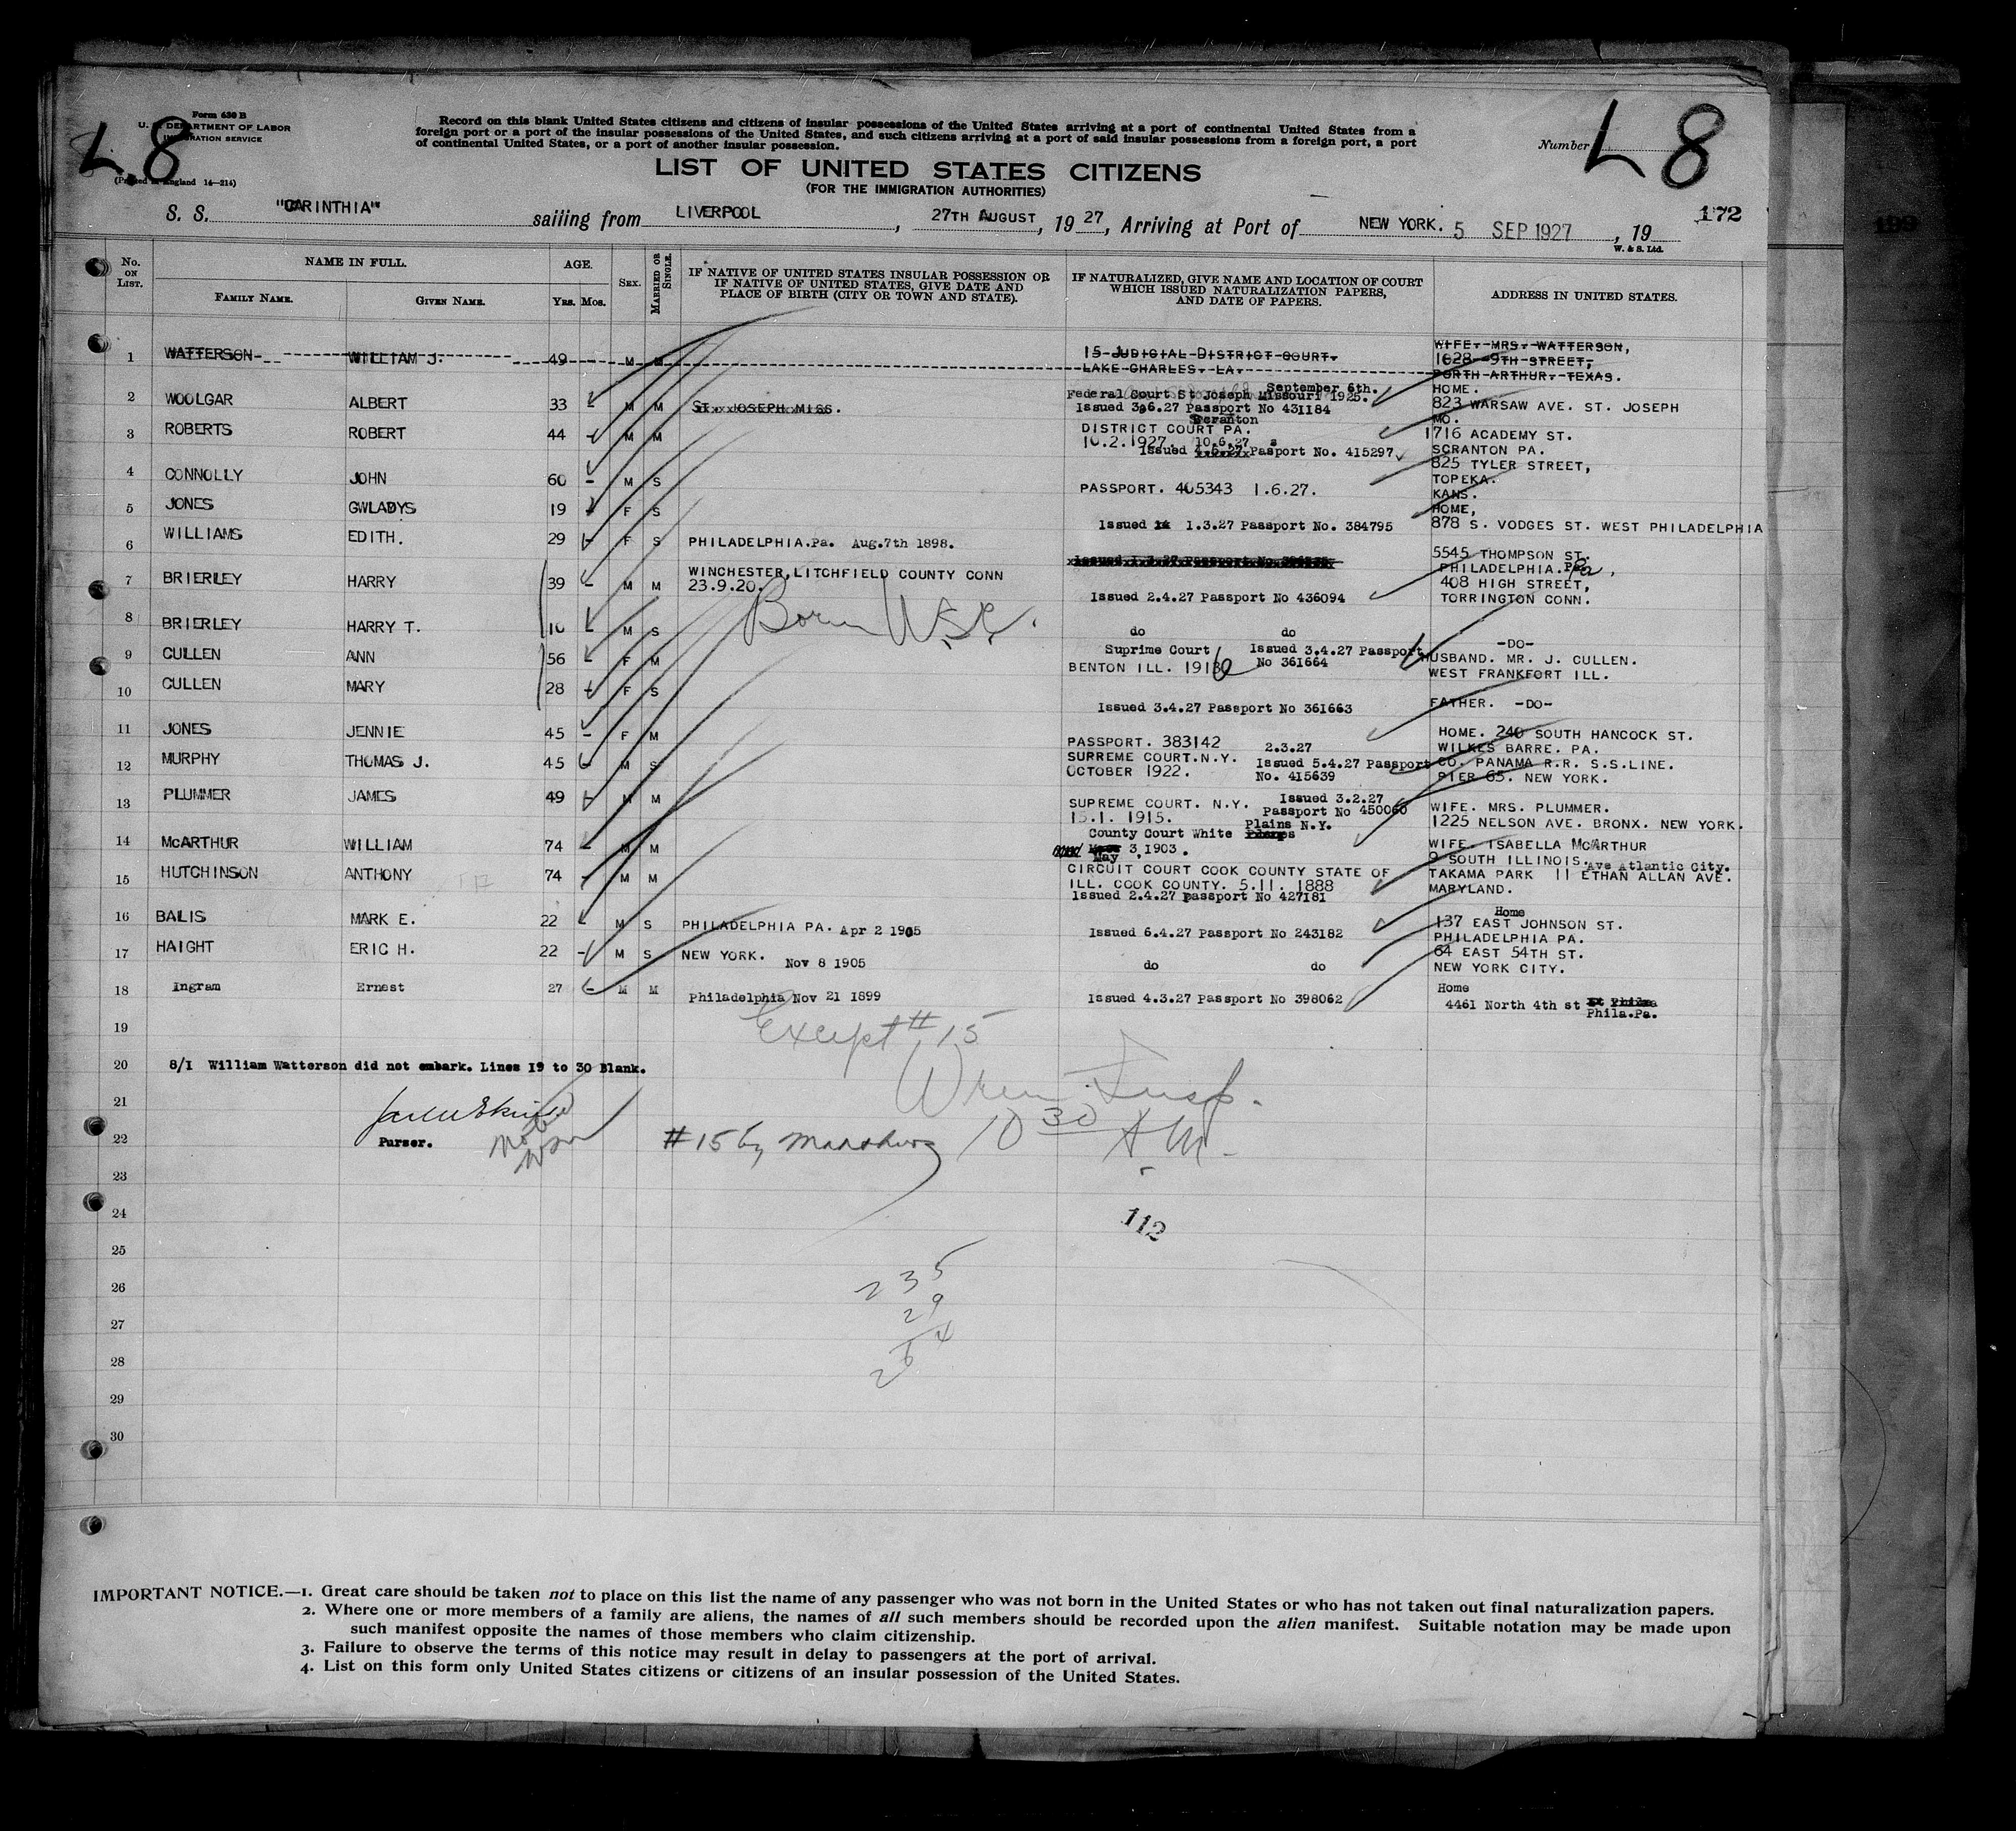 Form 630 B
U. S. DEPARTMENT OF LABOR
IMMIGRATION SERVICE
(Printed in England 14—214)
L 8
Record on this blank United States citizens and citizens of insular possessions of the United States arriving at a port of continental United States from a
foreign port or a port of the insular possessions of the United States, and such citizens arriving at a port of said insular possessions from a foreign port, a port
of continental United States, or a port of another insular possession.
Number L 8
LIST OF UNITED STATES CITIZENS
(FOR THE IMMIGRATION AUTHORITIES)
172
S. S. "CARINTHIA" sailing from LIVERPOOL, 27TH AUGUST, 1927, Arriving at Port of NEW YORK. 5 SEP 1927, 19
W. & S. Ltd.
No. ON LIST. NAME IN FULL. FAMILY NAME. GIVEN NAME. AGE. Yrs. Mos. SEX. MARRIED OR SINGLE. IF NATIVE OF UNITED STATES INSULAR POSSESSION OR IF NATIVE OF UNITED STATES, GIVE DATE AND PLACE OF BIRTH (CITY OR TOWN AND STATE). IF NATURALIZED, GIVE NAME AND LOCATION OF COURT WHICH ISSUED NATURALIZATION PAPERS, AND DATE OF PAPERS. ADDRESS IN UNITED STATES.
1 WATTERSON WILLIAM J. 49 - M M 15 JUDICIAL DISTRICT COURT. LAKE CHARLES. LA. WIFE. MRS. WATTERSON, 1628 9TH STREET, PORTH ARTHUR. TEXAS.
2 WOOLGAR ALBERT 33 - M M ST. JOSEPH MISS. Federal Court St Joseph Missouri September 6th. 1925. Issued 306.27 Passport No 431184 HOME. 823 WARSAW AVE. ST. JOSEPH MO.
3 ROBERTS ROBERT 44 - M M Scranton DISTRICT COURT PA. 10.2.1927. 10.6.27 s Issued 4.6.27 Pasport No. 415297 1716 ACADEMY ST. SCRANTON PA.
4 CONNOLLY JOHN 60 - M S PASSPORT. 405343 1.6.27. 825 TYLER STREET, TOPEKA. KANS.
5 JONES GWLADYS 19 - F S Issued 1.3.27 Passport No. 384795 HOME, 878 S. VODGES ST. WEST PHILADELPHIA
6 WILLIAMS EDITH. 29 - F S PHILADELPHIA.Pa. Aug.7th 1898. 5545 THOMPSON ST. PHILADELPHIA. Pa.
7 BRIERLEY HARRY 39 - M M WINCHESTER, LITCHFIELD COUNTY CONN 23.9.20. Issued 2.4.27 Passport No 436094 408 HIGH STREET, TORRINGTON CONN.
Born U.S.A.
8 BRIERLEY HARRY T. 10 - M S do do -DO-
9 CULLEN ANN 56 - F M Suprime Court Issued 3.4.27 Passport BENTON ILL. 1916 No 361664 HUSBAND. MR. J. CULLEN. WEST FRANKFORT ILL.
10 CULLEN MARY 28 - F S Issued 3.4.27 Passport No 361663 FATHER. -DO-
11 JONES JENNIE 45 - F M PASSPORT. 383142 2.3.27 HOME. 240 SOUTH HANCOCK ST. WILKES BARRE. PA.
12 MURPHY THOMAS J. 45 - M S SUPREME COURT.N.Y. Issued 5.4.27 Passport OCTOBER 1922. No. 415639 CO. PANAMA R.R. S.S.LINE. PIER 65. NEW YORK.
13 PLUMMER JAMES 49 - M M SUPREME COURT. N.Y. Issued 3.2.27 15.1. 1915. Passport No 450060 WIFE. MRS. PLUMMER. 1225 NELSON AVE. BRONX. NEW YORK.
14 McARTHUR WILLIAM 74 - M M County Court White Plains N.Y. May 3,1903. WIFE. ISABELLA McARTHUR 9 SOUTH ILLINOIS. Ave Atlantic City.
15 HUTCHINSON ANTHONY 74 - M M CIRCUIT COURT COOK COUNTY STATE OF ILL. COOK COUNTY. 5.11. 1888 Issued 2.4.27 passport No 427181 TAKAMA PARK 11 ETHAN ALLAN AVE. MARYLAND.
16 BALIS MARK E. 22 - M S PHILADELPHIA PA. Apr 2 1905 Issued 6.4.27 Passport No 243182 Home 137 EAST JOHNSON ST. PHILADELPHIA PA.
17 HAIGHT ERIC H. 22 - M S NEW YORK. Nov 8 1905 do do 64 EAST 54TH ST. NEW YORK CITY.
18 Ingram Ernest 27 - M M Philadelphia Nov 21 1899 Issued 4.3.27 Passport No 398062 Home 4461 North 4th st Phila.Pa.
19 Except #15
20 8/1 William Watterson did not embark. Lines 19 to 30 Blank.
Wren Insp.
21
22 Purser. #15 by 10 30 AM.
23
24 112
25
26 235
27 29
28 264
29
30
IMPORTANT NOTICE.—1. Great care should be taken not to place on this list the name of any passenger who was not born in the United States or who has not taken out final naturalization papers.
2. Where one or more members of a family are aliens, the names of all such members should be recorded upon the alien manifest. Suitable notation may be made upon
such manifest opposite the names of those members who claim citizenship.
3. Failure to observe the terms of this notice may result in delay to passengers at the port of arrival.
4. List on this form only United States citizens or citizens of an insular possession of the United States.